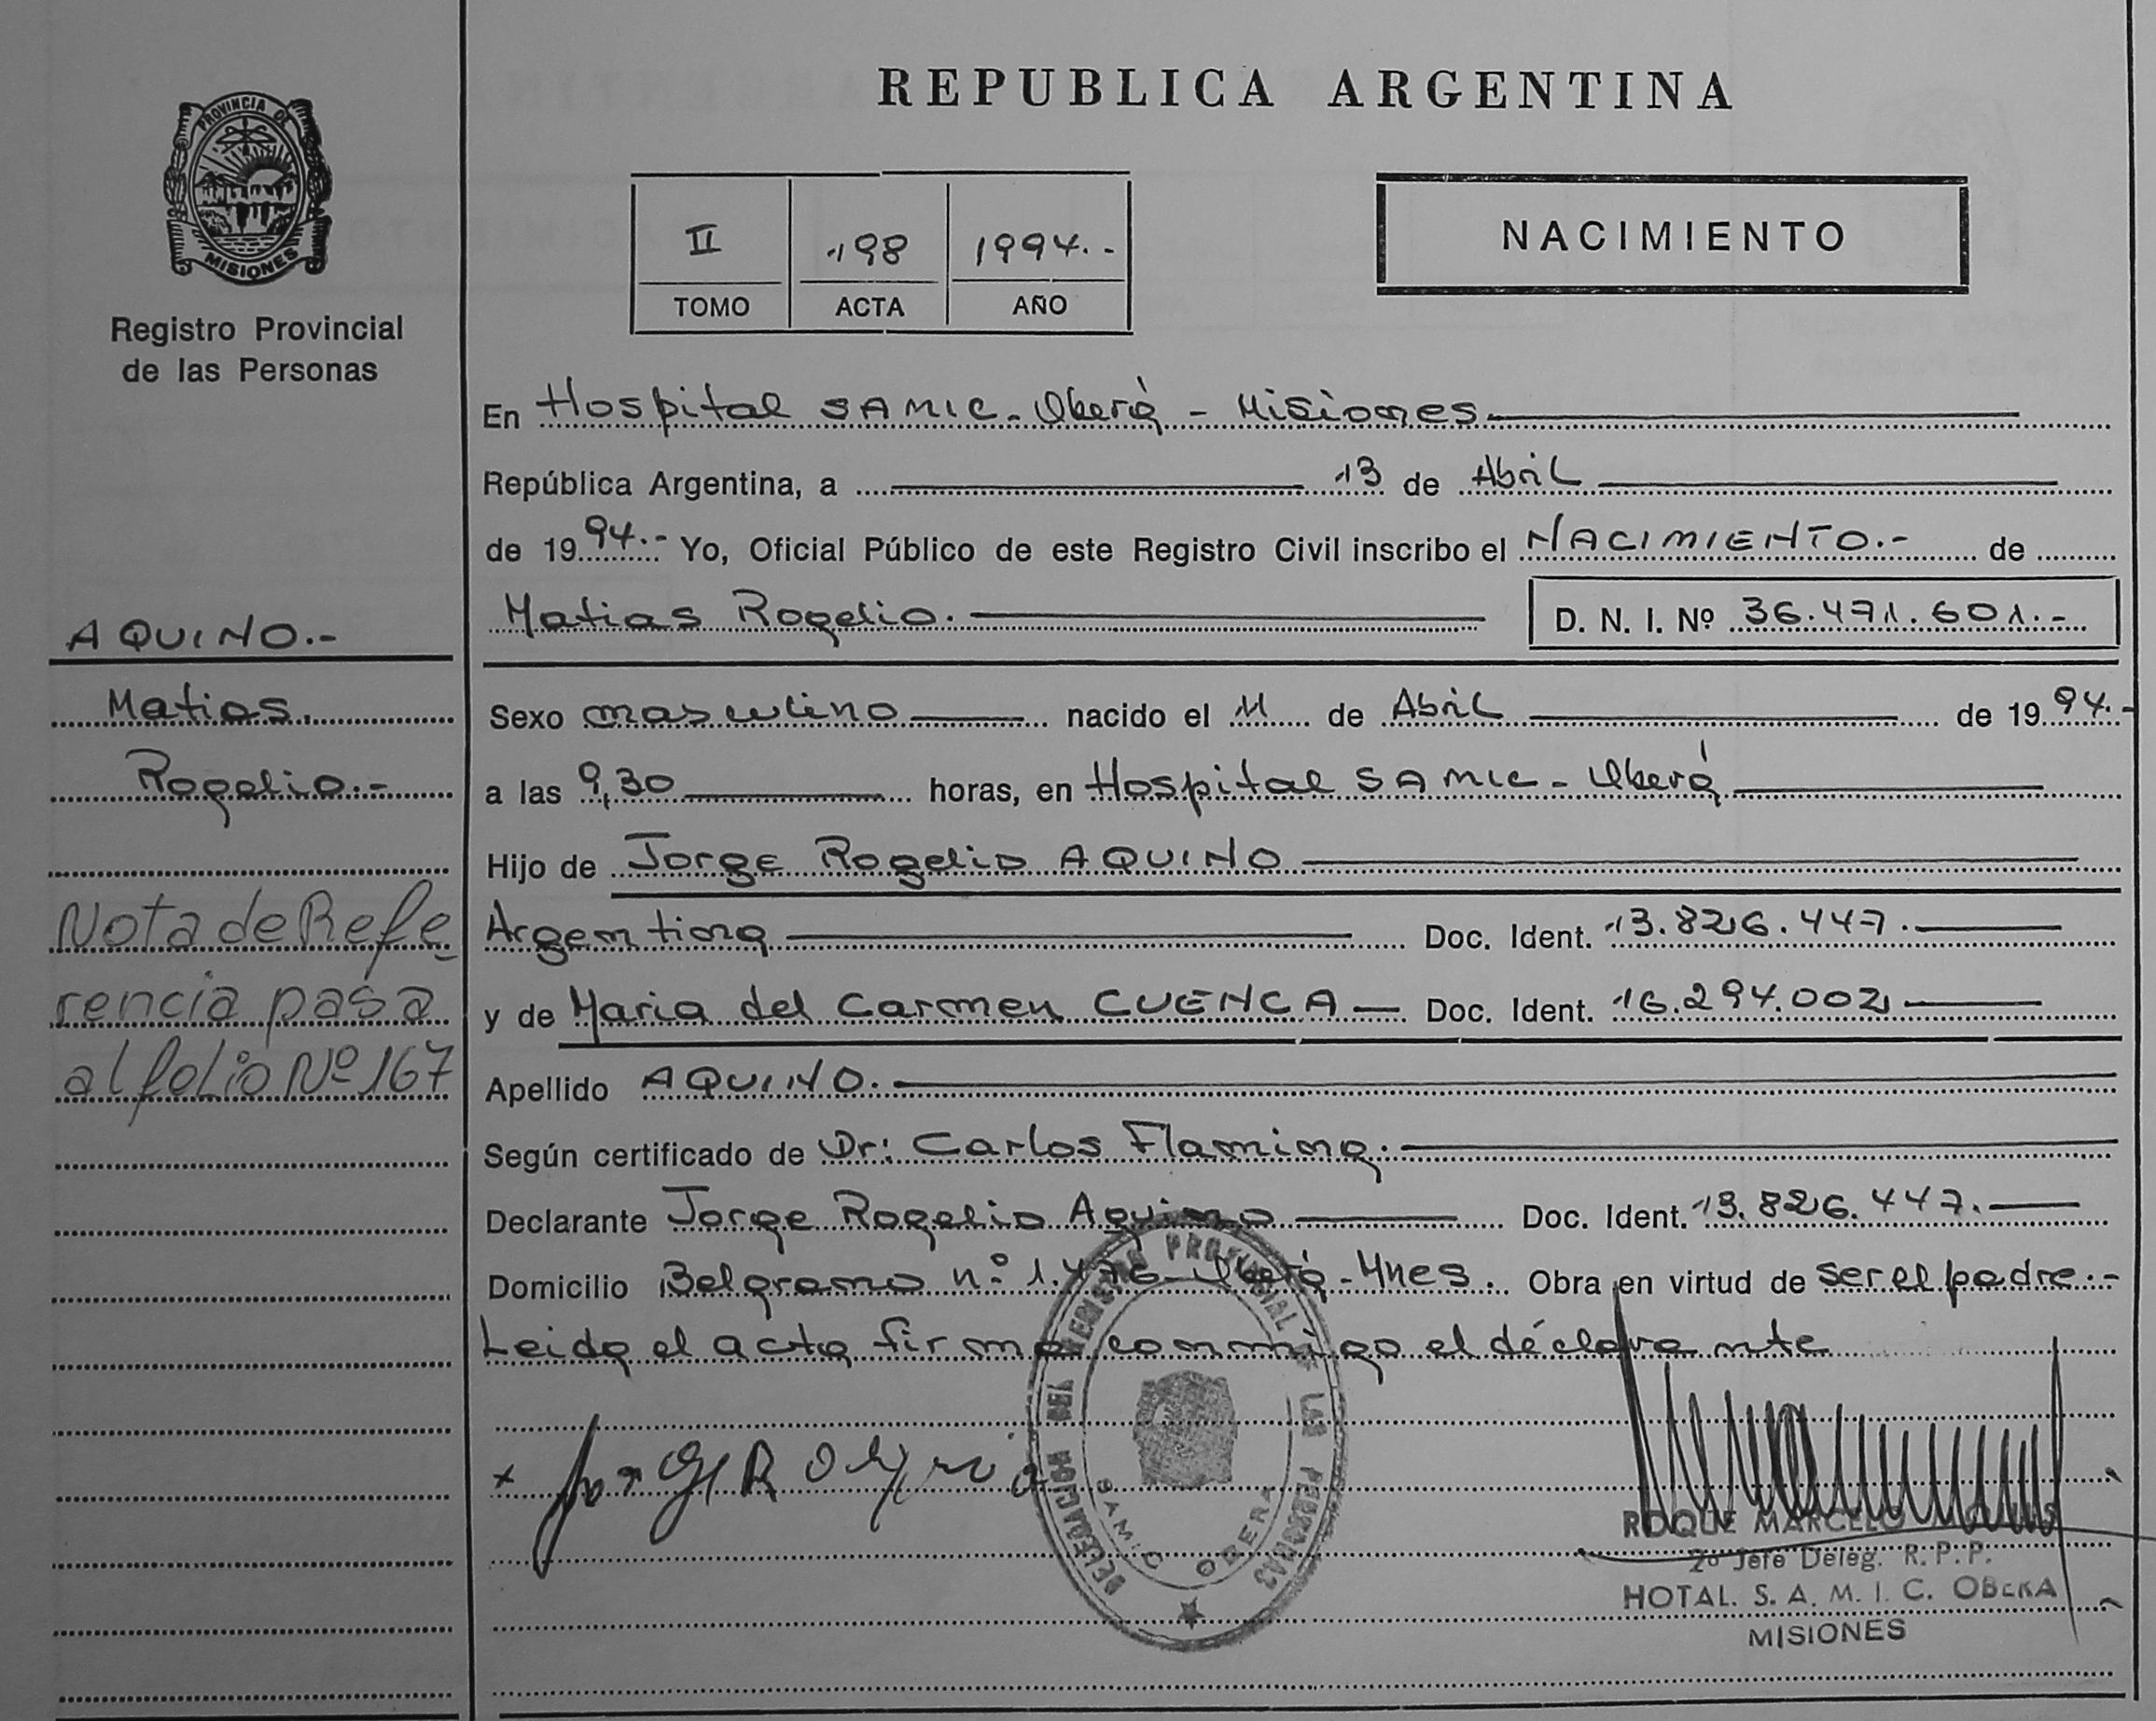 PROVINCIA DE
MISIONES
Registro Provincial
de las Personas
REPUBLICA ARGENTINA
II 198 1994.-
TOMO ACTA AÑO
NACIMIENTO
En Hospital SAMIC - Oberá - Misiones
República Argentina, a 13 de Abril
de 1994.- Yo, Oficial Público de este Registro Civil inscribo el NACIMIENTO.- de
Matias Rogelio. D. N. I. Nº 36.471.601.-
AQUINO.-
Matias
Rogelio.-
Nota de Refe
rencia pasa
al folio Nº 167
Sexo masculino nacido el 11 de Abril de 1994.-
a las 9,30 horas, en Hospital SAMIC - Oberá
Hijo de Jorge Rogelio AQUINO
Argentina Doc. Ident. 13.826.447.
y de Maria del Carmen CUENCA Doc. Ident. 16.294.002
Apellido AQUINO.
Según certificado de Dr: Carlos Flamina.
Declarante Jorge Rogelio Aquino Doc. Ident. 13.826.447.
Domicilio Belgrano nº 1.476 - Oberá - Mnes. Obra en virtud de ser el padre.-
Leida el acta firma conmigo el declarante
DELEGACION DEL REGISTRO PROVINCIAL DE LAS PERSONAS
SAMIC OBERA
ROQUE MARCELO
2º Jefe Deleg. R. P. P.
HOTAL. S. A. M. I. C. OBERA
MISIONES